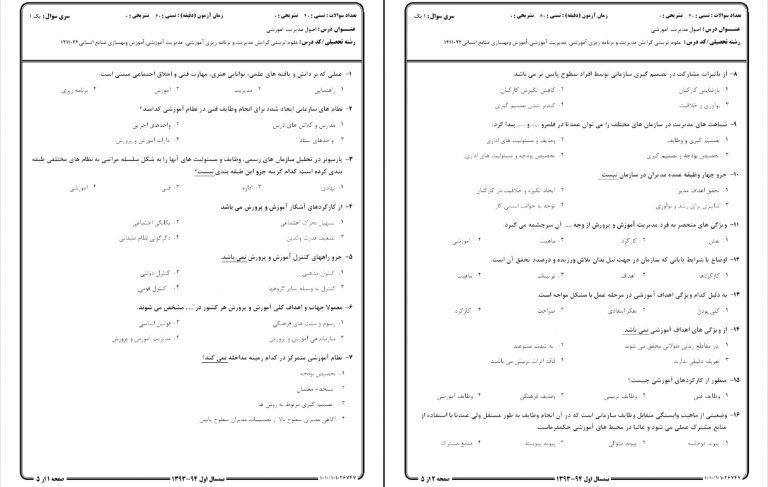 سری سوال: یک ۱
زمان آزمون (دقیقه): تستی: ۶۰ تشریحی: ۰
تعداد سوالات: تستی: ۲۰ تشریحی: ۰
عنـــوان درس: اصول مدیریت آموزشی
رشته تحصیلی/کد درس: علوم تربیتی گرایش مدیریت و برنامه ریزی آموزشی، مدیریت آموزشی، آموزش وبهسازی منابع انسانی ۱۲۱۱۰۲۲
۱- عملی که بر دانش و یافته های علمی، توانایی هنری، مهارت فنی و اخلاق اجتماعی مبتنی است.
۱. راهنمایی ۲. مدیریت ۳. آموزش ۴. برنامه ریزی
۲- نظام های سازمانی ایجاد شده برای انجام وظایف فنی در نظام آموزشی کدامند؟
۱. مدارس و کلاس های درس ۲. واحدهای اجرایی
۳. واحدهای ستاد ۴. ادارات آموزش و پرورش
۳- پارسونز در تحلیل سازمان های رسمی، وظایف و مسئولیت های آنها را به شکل سلسله مراتبی به نظام های مختلفی طبقه
بندی کرده است. کدام گزینه جزو این طبقه بندی نیست؟
۱. نهادی ۲. اداره ۳. فنی ۴. آموزشی
۴- از کارکردهای آشکار آموزش و پرورش می باشد
۱. تسهیل تحرک اجتماعی ۲. یگانگی اجتماعی
۳. تضعیف قدرت والدین ۴. دگرگونی نظام طبقاتی
۵- جزو راههای کنترل آموزش و پرورش نمی باشد.
۱. کنترل مذهبی ۲. کنترل دولتی
۳. کنترل به وسیله سایر گروهها ۴. کنترل قومی
۶- معمولا جهات و اهداف کلی آموزش و پرورش هر کشور در ..... مشخص می شوند.
۱. رسوم و سنت های فرهنگی ۲. قوانین اساسی
۳. سازماندهی آموزش و پرورش ۴. مدیریت آموزش و پرورش
۷- نظام آموزشی متمرکز در کدام زمینه مداخله نمی کند؟
۱. تخصیص بودجه
۲. استخدام معلمان
۳. تصمیم گیری مربوط به روش ها
۴. آگاهی مدیران سطوح بالا از تصمیمات مدیران سطوح پایین
صفحه ۱ از ۵
نیمسال اول ۹۴-۱۳۹۳
۱۰۱۰/۱۰۱۰۲۶۷۴۷
سری سوال: ۱ یک
زمان آزمون (دقیقه): تستی: ۶۰ تشریحی: ۰
تعداد سوالات: تستی: ۲۰ تشریحی: ۰
عنـــوان درس: اصول مدیریت آموزشی
رشته تحصیلی/کد درس: علوم تربیتی گرایش مدیریت و برنامه ریزی آموزشی، مدیریت آموزشی، آموزش وبهسازی منابع انسانی ۱۲۱۱۰۲۲
۸- از تاثیرات مشارکت در تصمیم گیری سازمانی توسط افراد سطوح پایین تر می باشد.
۱. نارضایتی کارکنان ۲. کاهش انگیزش کارکنان
۳. نوآوری و خلاقیت ۴. کندتر شدن تصمیم گیری
۹- شباهت های مدیریت در سازمان های مختلف را می توان عمدتا در قلمرو ..... و ..... پیدا کرد.
۱. تصمیم گیری و وظایف ۲. وظایف و مسئولیت های اداری
۳. تخصیص بودجه و تصمیم گیری ۴. تخصیص بودجه و مسئولیت های اداری
۱۰- جزو چهار وظیفه عمده مدیران در سازمان نیست.
۱. تحقق اهداف مدیر ۲. ایجاد انگیزه و خلاقیت در کارکنان
۳. تدابیری برای رشد و نوآوری ۴. توجه به جوانب انسانی کار
۱۱- ویژگی های منحصر به فرد مدیریت آموزش و پرورش از وجه ..... آن سرچشمه می گیرد.
۱. نقش ۲. کارکرد ۳. ماهیت ۴. آموزشی
۱۲- اوضاع یا شرایط پایانی که سازمان در جهت نیل بدان تلاش ورزیده و درصدد تحقق آن است.
۱. کارکردها ۲. اهداف ۳. ترتیبات ۴. ماهیت
۱۳- به دلیل کدام ویژگی اهداف آموزشی در مرحله عمل با مشکل مواجه است.
۱. کلی بودن ۲. تفکر انتقادی ۳. صراحت ۴. کارکرد
۱۴- از ویژگی های اهداف آموزشی نمی باشد.
۱. در مقاطع زمانی طولانی محقق می شوند ۲. به شدت متنوعند
۳. تعریف دقیقی ندارند ۴. فاقد اثرات تربیتی می باشند
۱۵- منظور از کارکردهای آموزشی چیست؟
۱. وظایف فنی ۲. وظایف تربیتی ۳. وظایف فرهنگی ۴. وظایف آموزشی
۱۶- وضعیتی از ماهیت وابستگی متقابل وظایف سازمانی است که در آن انجام وظایف به طور مستقل ولی عمدتا با استفاده از
منابع مشترک عملی می شود و غالبا در محیط های آموزشی حکمفرماست.
۱. پیوند دوجانبه ۲. پیوند متوالی ۳. پیوند پیوسته ۴. منابع مشترک
صفحه ۲ از ۵
نیمسال اول ۹۴-۱۳۹۳
۱۰۱۰/۱۰۱۰۲۶۷۴۷